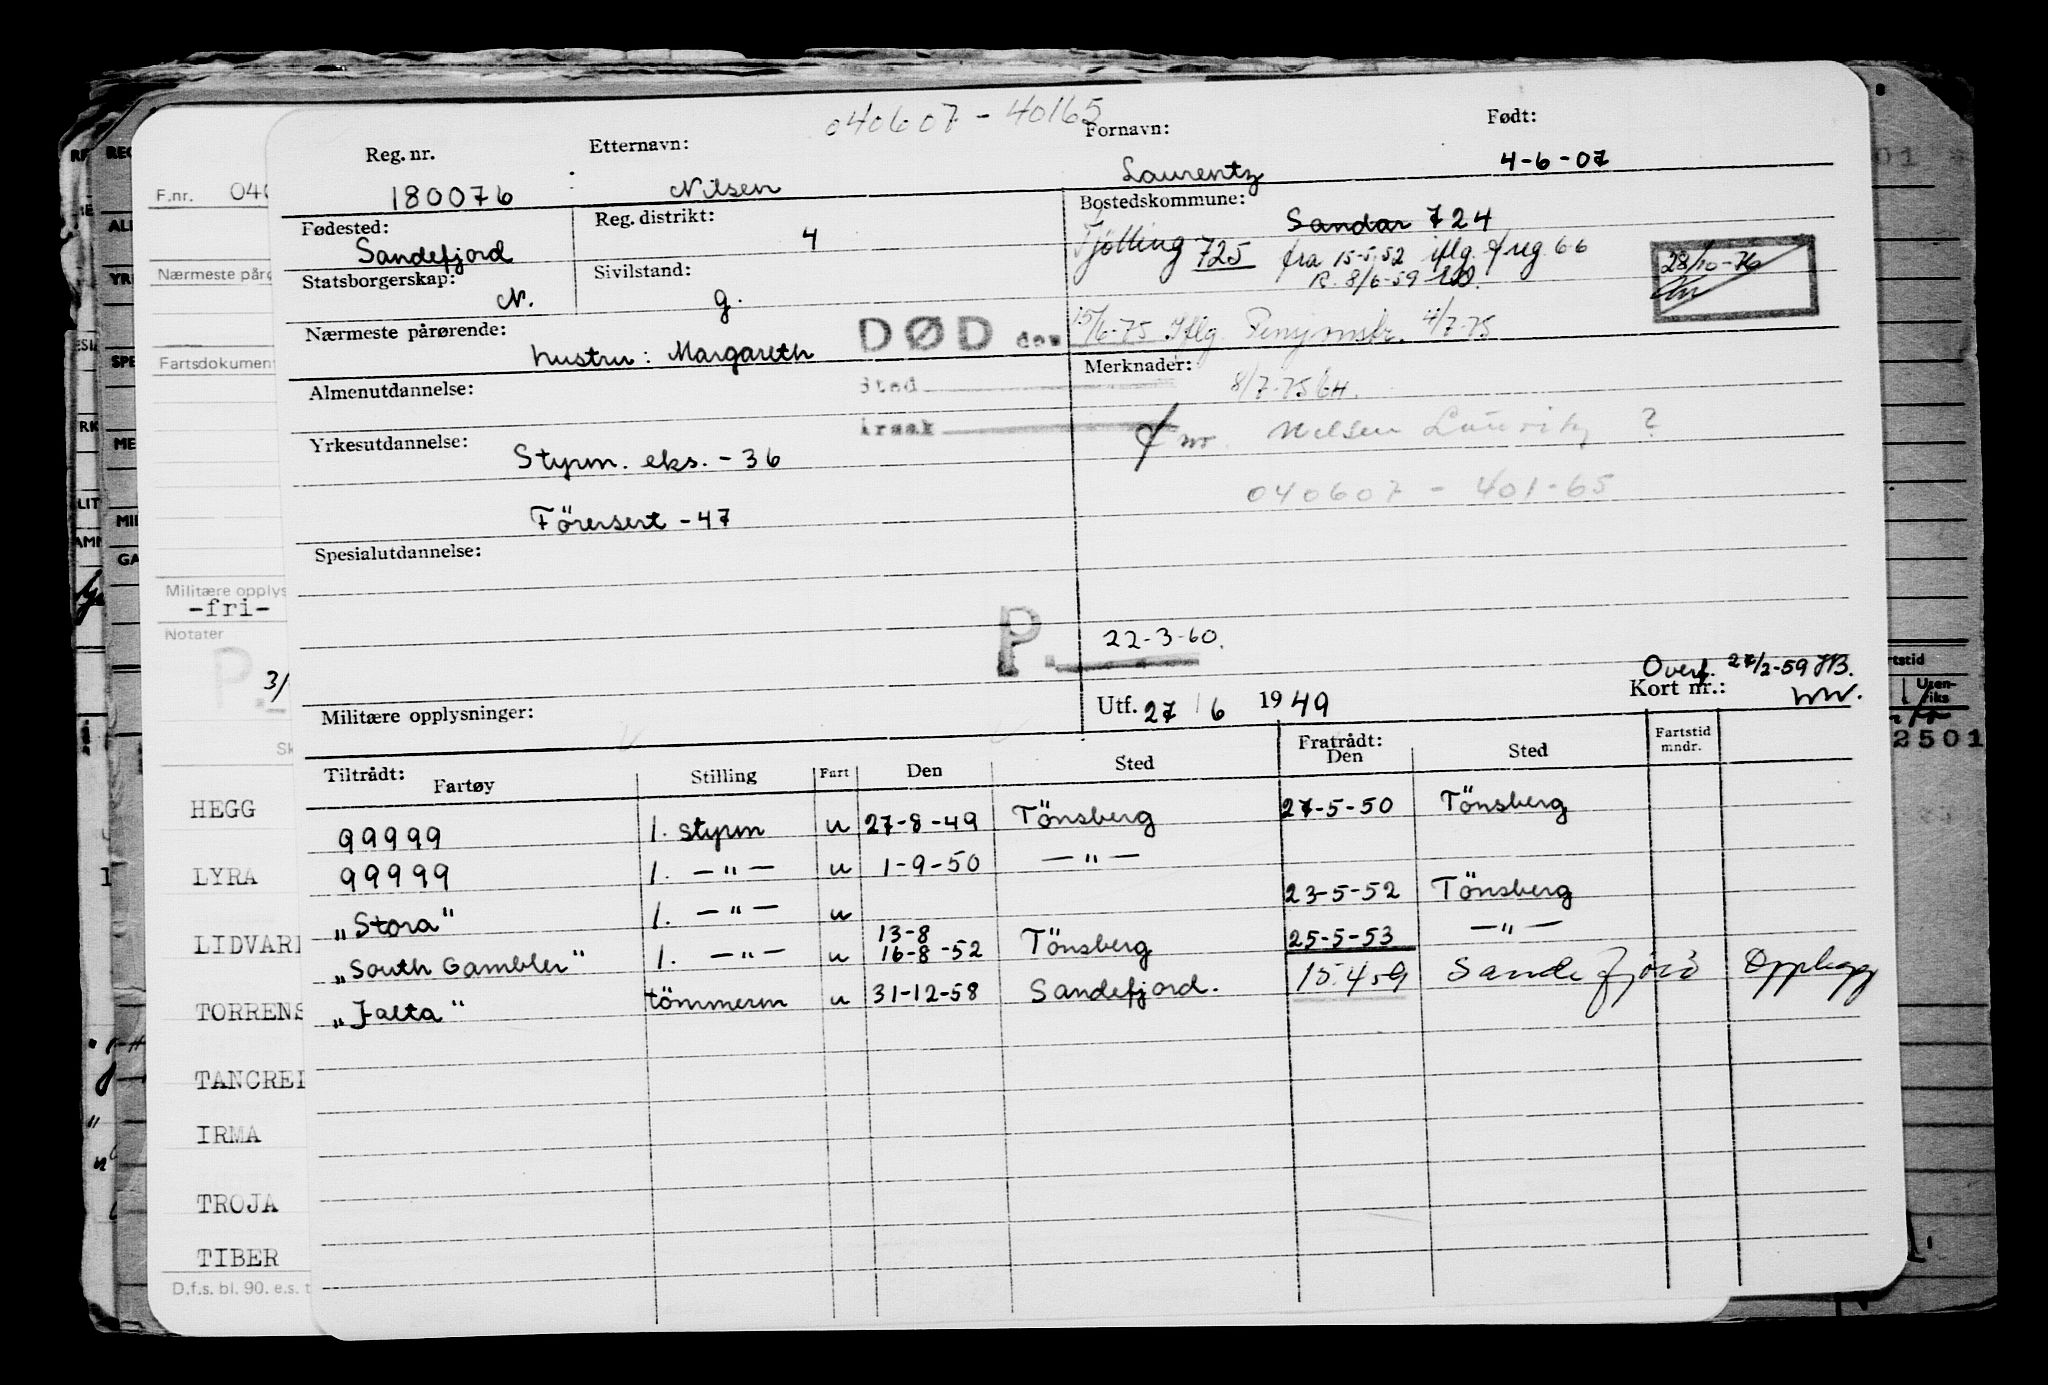 040607 - 40165
Reg. nr. Etternavn: Fornavn: Født:
180076 Nilsen Laurentz 4-6-07
Fødested: Reg. distrikt: Bostedskommune:
Sandefjord 4 Sandar 724
Tjölling 725 fra 15-5-52 iflg. freg 66
R. 8/6-59
Statsborgerskap: Sivilstand:
N. g.
28/10-76
Nærmeste pårørende: DØD den 15/6-75 Iflg. Pensjonstr. 4/7-75
hustru: Margareth
Almenutdannelse: Sted Merknader:
8/7-75 GH.
Årsak
Yrkesutdannelse: nr. Nilsen Lauritz ?
Styrm. eks. - 36
040607 - 401-65
Förersert - 47
Spesialutdannelse:
P. 22-3-60.
Overf. 27/2-59 HB.
Militære opplysninger: Utf. 27/6 1949 Kort nr.:
Tiltrådt: Fartøy Stilling Fart Den Sted Fratrådt: Den Sted Fartstid mndr.
99999 1. styrm u 27-8-49 Tönsberg 27-5-50 Tönsberg
99999 1. — " — u 1-9-50 — " —
"Stora" 1. — " — u 23-5-52 Tönsberg
13-8
"South Gambler" 1. — " — u 16-8-52 Tönsberg 25-5-53 — " —
"Jalta" tömmerm u 31-12-58 Sandefjord. 15.4.59 Sandefjord Opplegg
F.nr. 040
Nærmeste pårø
Fartsdokumen
Militære opplys
-fri-
Notater
P.
3/
Sk
HEGG
LYRA
LIDVAR
TORRENS
TANCRE
IRMA
TROJA
TIBER
D.f.s. bl. 90. e.s. t
REG
ALI
YR
SPE
ME
MI
GA
01
rtstid
Uten-
riks
2501